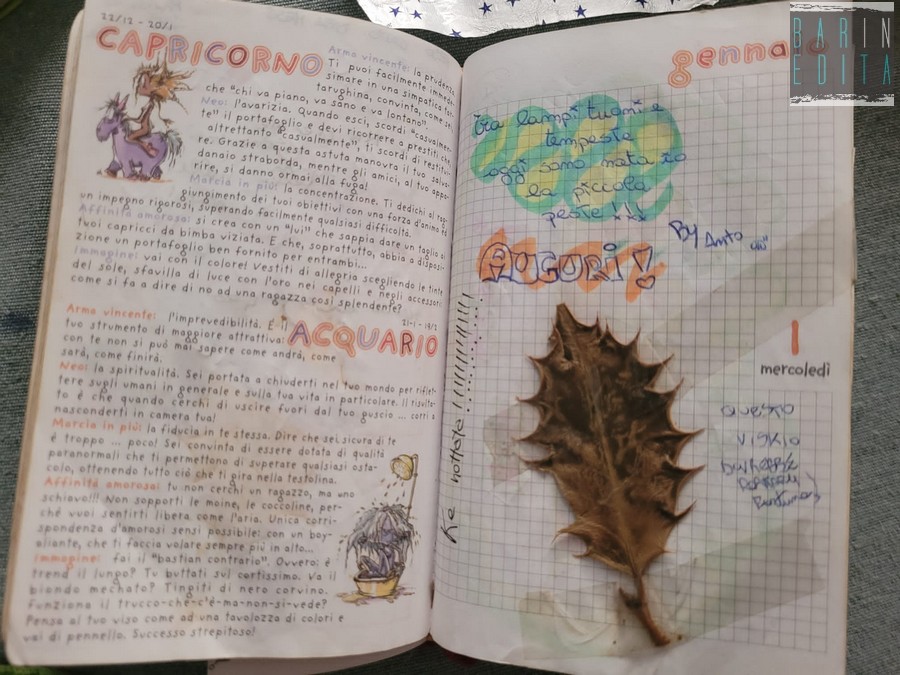 22/12 - 20/1
CAPRICORNO
Arma vincente: la prudenza.
Ti puoi facilmente immede-
simare in una simpatica
tarughina, convinta, come
che "chi va piano, va sano e va lontano".
Neo: l'avarizia. Quando esci, scordi "casualmen-
te" il portafoglio e devi ricorrere a prestiti che,
altrettanto "casualmente", ti scordi di restitui-
re. Grazie a questa astuta manovra il tuo salva-
danaio straborda, mentre gli amici, al tuo appa-
rire, si danno ormai alla fuga!
Marcia in più: la concentrazione. Ti dedichi al rag-
giungimento dei tuoi obiettivi con una forza d'animo e
un impegno rigorosi, superando facilmente qualsiasi difficoltà.
Affinità amorosa: si crea con un "lui" che sappia dare un taglio ai
tuoi capricci da bimba viziata. E che, soprattutto, abbia a disposi-
zione un portafoglio ben fornito per entrambi...
Immagine: vai con il colore! Vestiti di allegria scegliendo le tinte
del sole, sfavilla di luce con l'oro nei capelli e negli accessori
come si fa a dire di no ad una ragazza così splendente?
21-1 - 19/2
ACQUARIO
Arma vincente: l'imprevedibilità. È il
tuo strumento di maggiore attrattiva:
con te non si può mai sapere come andrà, come
sarà, come finirà.
Neo: la spiritualità. Sei portata a chiuderti nel tuo mondo per riflet-
tere sugli umani in generale e sulla tua vita in particolare. Il risulta-
to è che quando cerchi di uscire fuori dal tuo guscio ... corri a
nasconderti in camera tua!
Marcia in più: la fiducia in te stessa. Dire che sei sicura di te
è troppo ... poco! Sei convinta di essere dotata di qualità
paranormali che ti permettono di superare qualsiasi osta-
colo, ottenendo tutto ciò che ti gira nella testolina.
Affinità amorosa: tu non cerchi un ragazzo, ma uno
schiavo!!! Non sopporti le moine, le coccoline, per-
ché vuoi sentirti libera come l'aria. Unica corri-
spondenza d'amorosi sensi possibile: con un boy-
aliante, che ti faccia volare sempre più in alto...
Immagine: fai il "bastian contrario". Ovvero: è
trend il lungo? Tu buttati sul cortissimo. Va il
biondo mechato? Tingiti di nero corvino.
Funziona il trucco-che-c'è-ma-non-si-vede?
Pensa al tuo viso come ad una tavolozza di colori e
vai di pennello. Successo strepitoso!
BARIN
EDITA
genna
tra lampi tuoni e
tempeste
oggi sono nata io
la piccola
peste!!!
By Anto
AUGURI!
Ke nottata !!!!!!!!!!
1
mercoledì
questo
viskio